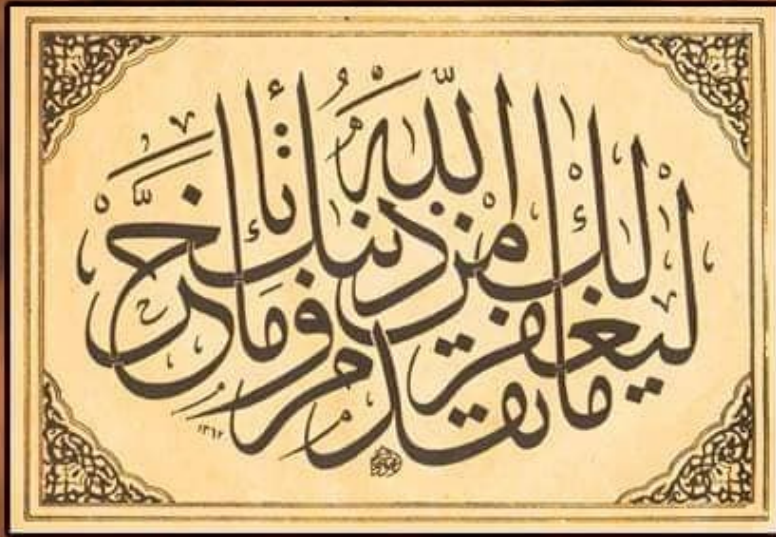 ليغفر لك الله ما تقدم من ذنبك وما تأخر
١٣٦٢